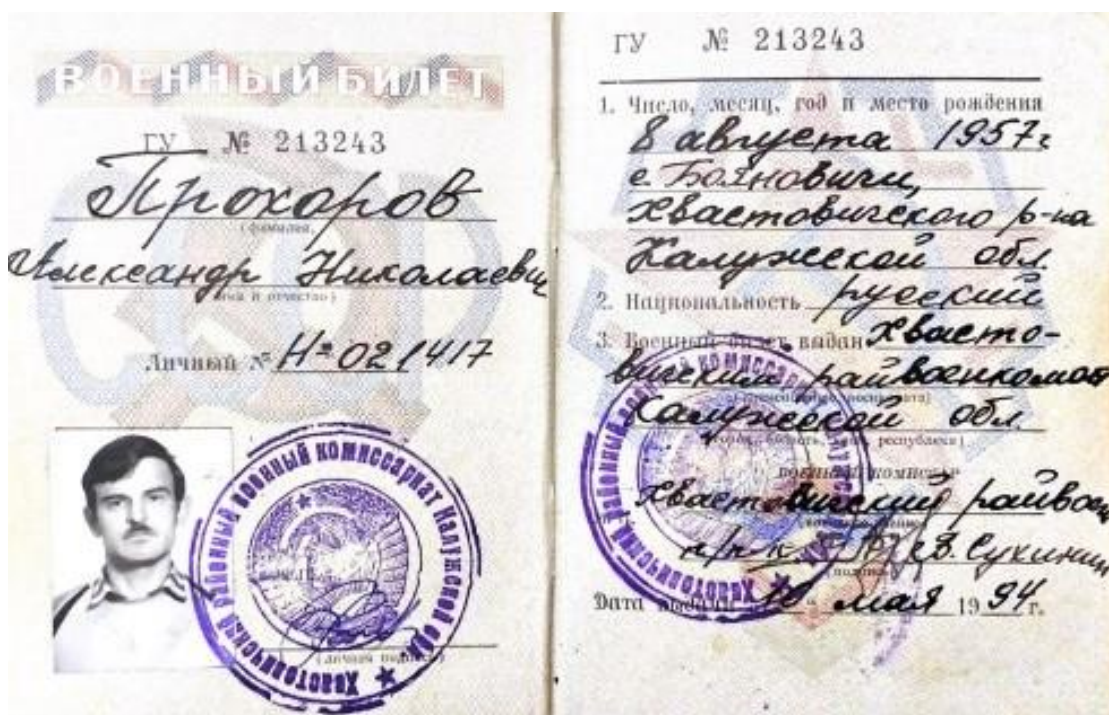 ВОЕННЫЙ БИЛЕТ
ГУ № 213243
Прохоров
(фамилия)
Александр Николаевич
(имя и отчество)
Личный № Н-021417
Хвастовичский районный военный комиссариат Калужской обл.
(личная подпись)
ГУ № 213243
1. Число, месяц, год и место рождения
8 августа 1957г
с. Бояновичи,
Хвастовичского р-на
Калужской обл.
2. Национальность русский
3. Военный билет выдан Хвасто-
вичским райвоенкомат
Калужской обл.
республика)
военный комиссар
Хвастовичский райвоен
п/п-к В. Сухинин
(подпись)
Дата выдачи "10" мая 1994 г.
Хвастовичский районный военный комиссариат